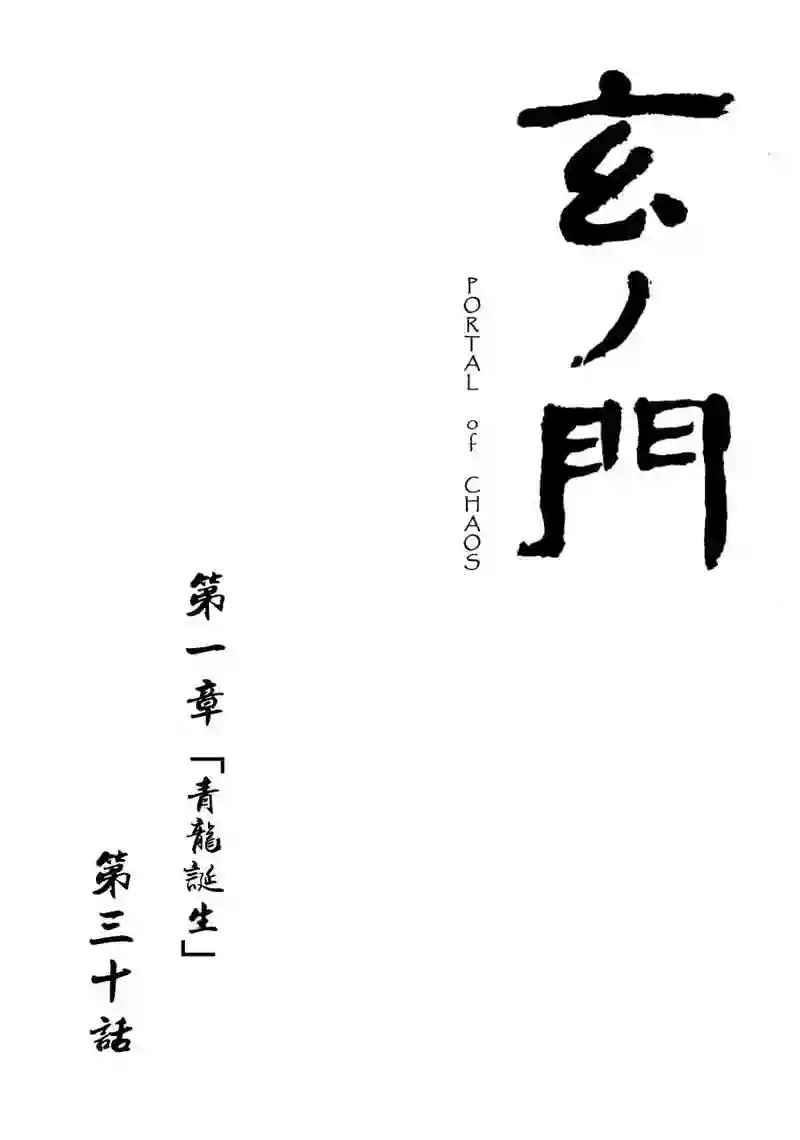 玄ノ門
PORTAL of CHAOS
第一章「青龍誕生」
第三十話